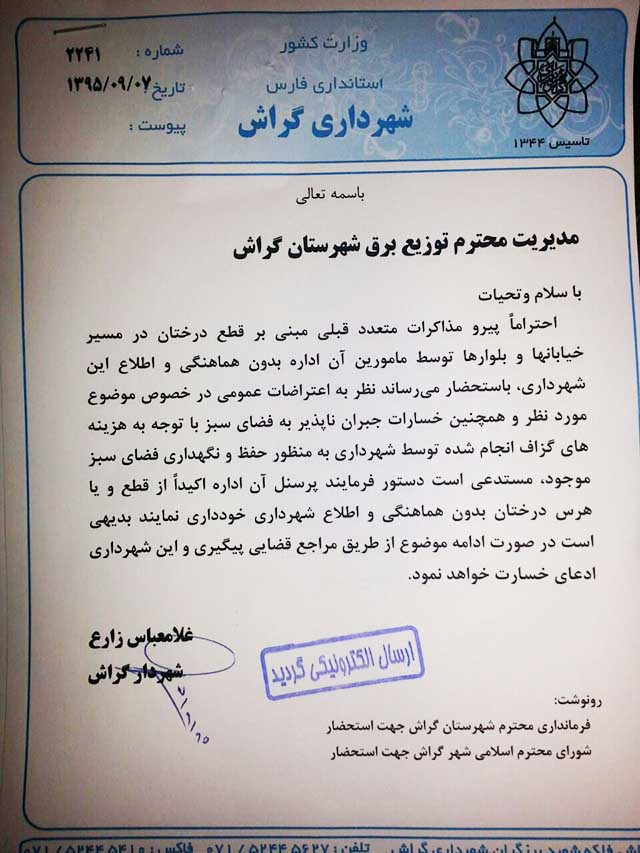 وزارت کشور
استانداری فارس
شهرداری گراش
شماره : ۲۲۴۱
تاریخ : ۱۳۹۵/۰۹/۰۷
پیوست :
تاسیس ۱۳۴۴
باسمه تعالی
مدیریت محترم توزیع برق شهرستان گراش
با سلام وتحیات
احتراماً پیرو مذاکرات متعدد قبلی مبنی بر قطع درختان در مسیر
خیابانها و بلوارها توسط مامورین آن اداره بدون هماهنگی و اطلاع این
شهرداری، باستحضار می‌رساند نظر به اعتراضات عمومی در خصوص موضوع
مورد نظر و همچنین خسارات جبران ناپذیر به فضای سبز با توجه به هزینه
های گزاف انجام شده توسط شهرداری به منظور حفظ و نگهداری فضای سبز
موجود، مستدعی است دستور فرمایند پرسنل آن اداره اکیداً از قطع و یا
هرس درختان بدون هماهنگی و اطلاع شهرداری خودداری نمایند بدیهی
است در صورت ادامه موضوع از طریق مراجع قضایی پیگیری و این شهرداری
ادعای خسارت خواهد نمود.
غلامعباس زارع
شهردار گراش
ارسال الکترونیکی گردید
رونوشت:
فرمانداری محترم شهرستان گراش جهت استحضار
شورای محترم اسلامی شهر گراش جهت استحضار
فلکه شهید برزگران شهرداری گراش تلفن : ۵۲۴۴۵۶۲۷ / ۰۷۱ فاکس : ۵۲۴۴۵۴۱۰ / ۰۷۱